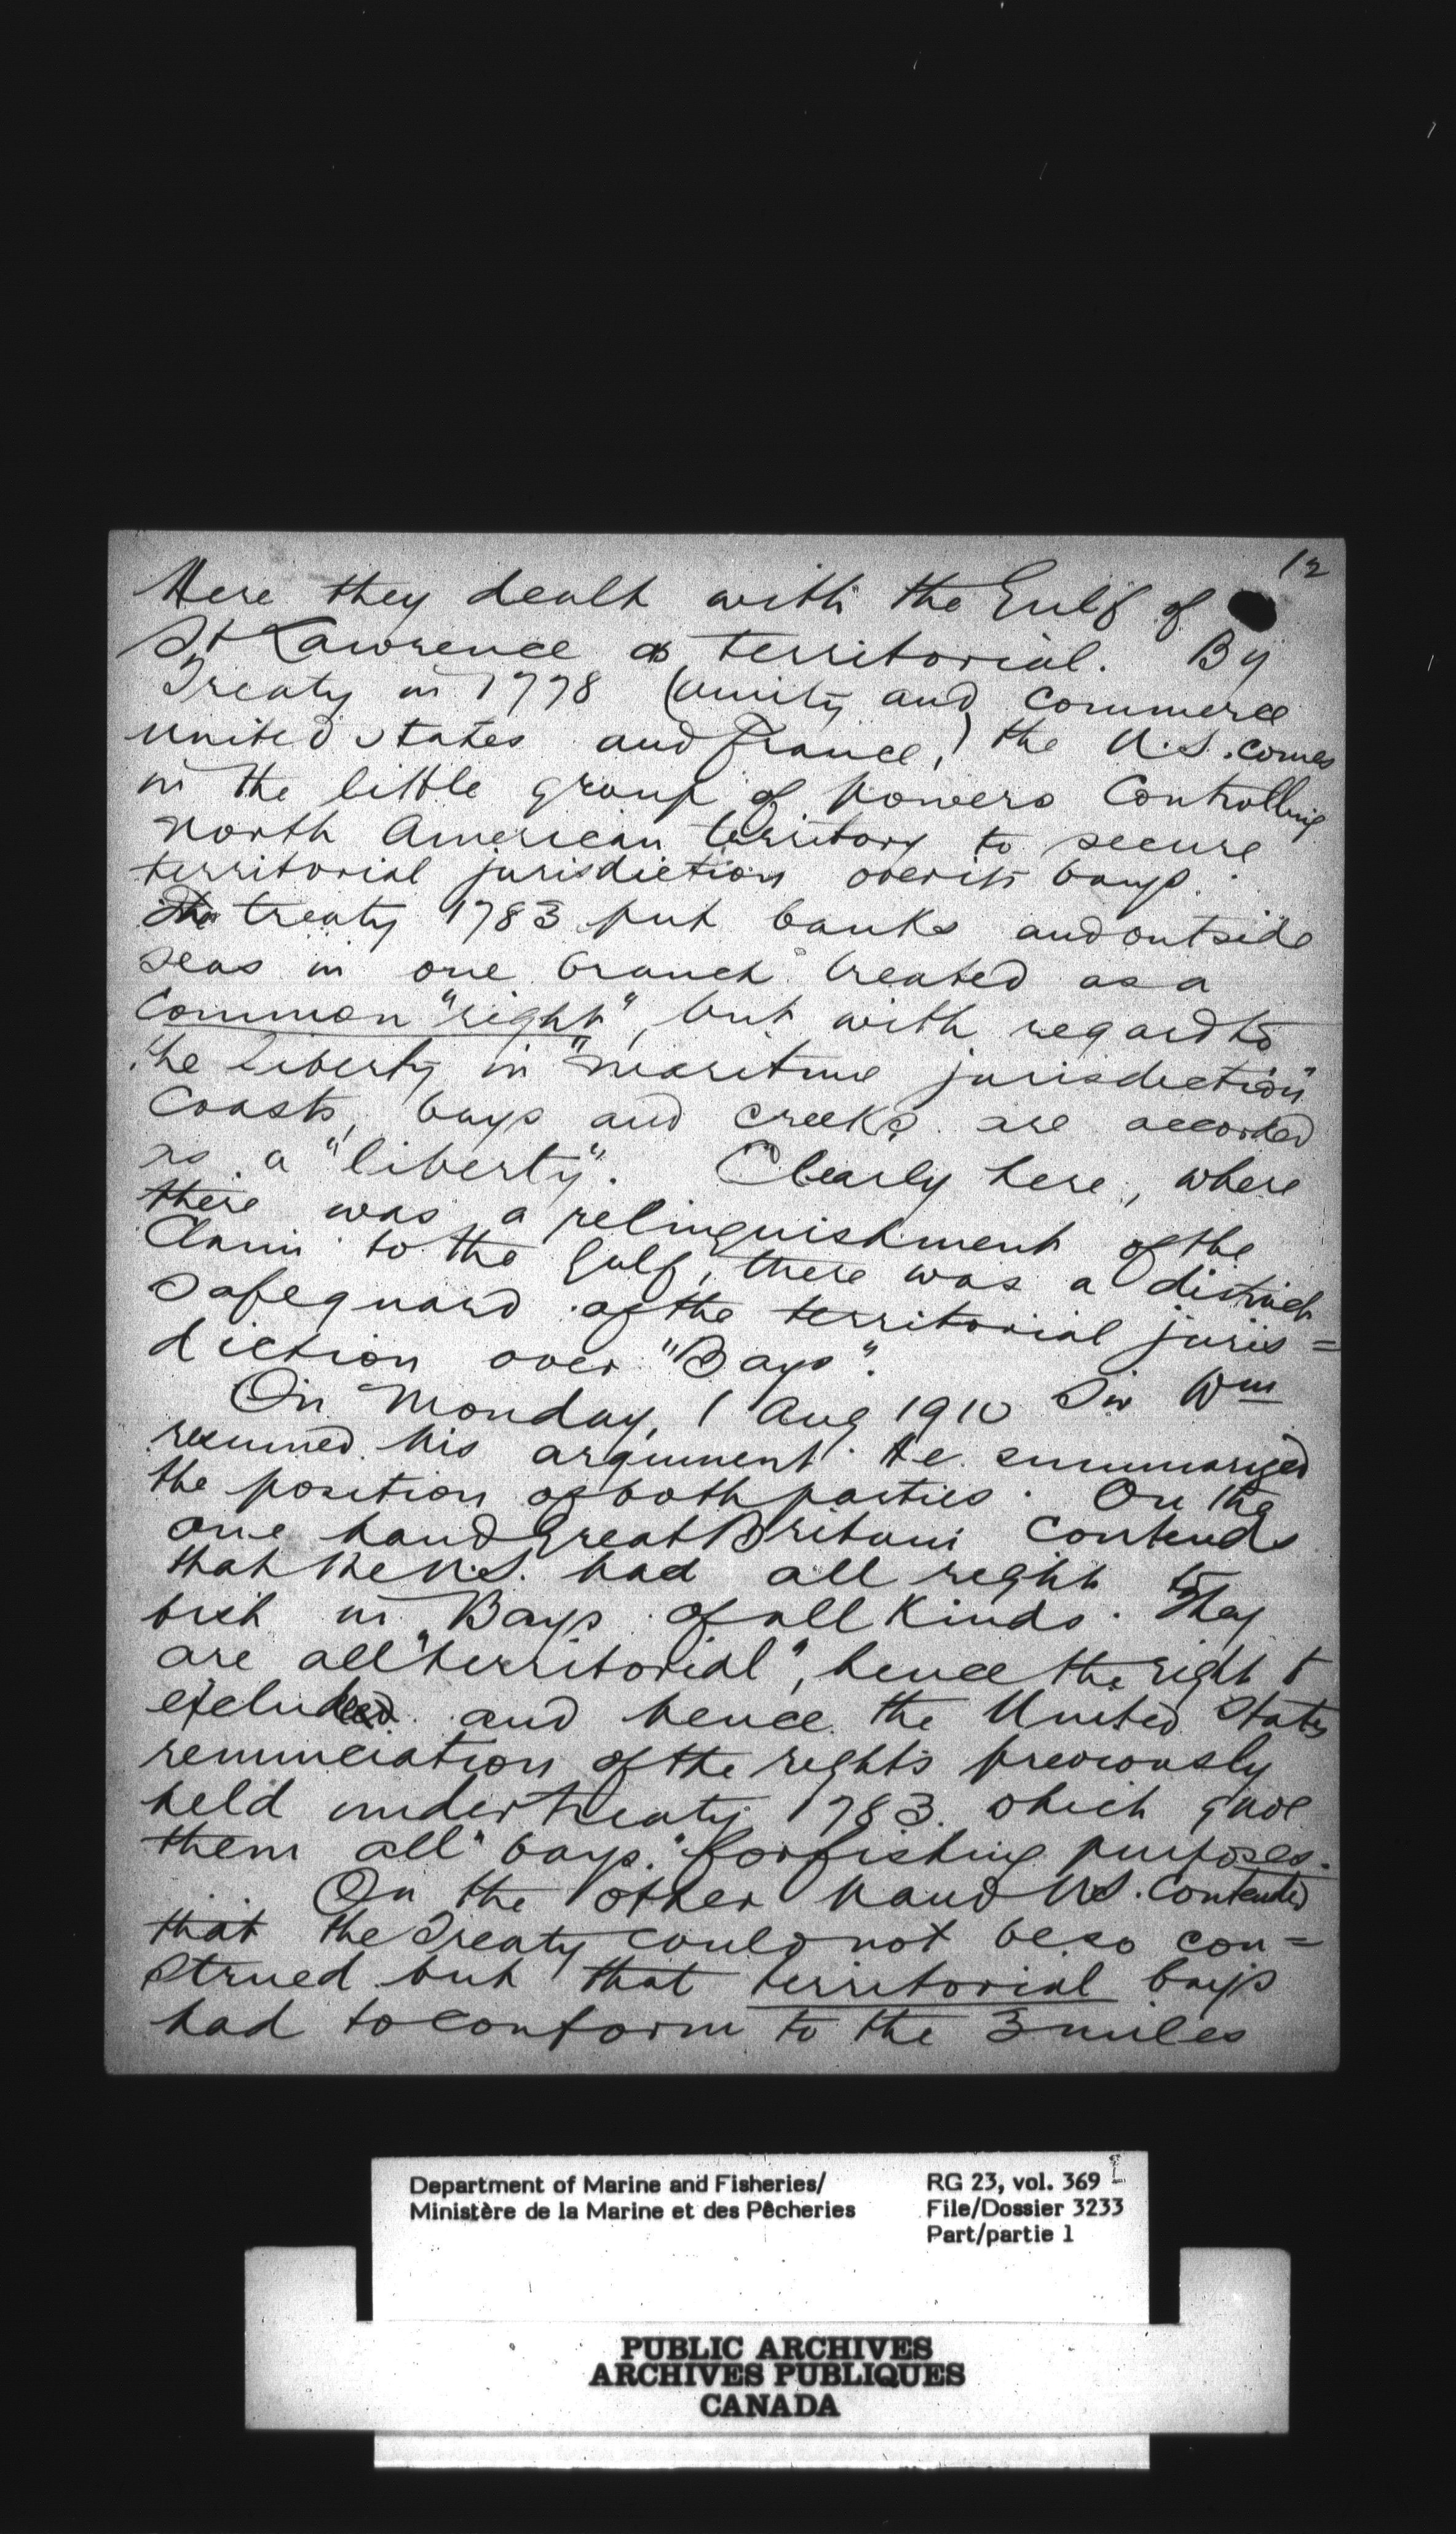 12
Here they dealt with the Gulf of
St Lawrence as territorial. By
Treaty in 1778 (amity and commerce
united states and France,) the U.S. comes
in the little group of powers Controlling
north American territory to secure
territorial jurisdiction over its bays.
The treaty 1783 put banks and outside
seas in one branch treated as a
common "right", but with regard to
the liberty in "maritime jurisdiction"
Coasts, bays and creeks are accorded
as a "liberty". Clearly here, where
there was a relinquishment of the
Claim to the Gulf, there was a distinct
safeguard of the territorial juris=
diction over "Bays".
On Monday, 1 Aug 1910 Sir Wm
resumed his argument. He summarized
the position of both parties. On the
one hand Great Britain contends
that the U.S. had all right to
fish in Bays of all kinds. They
are all "territorial", hence the right t
exclude and hence the United States
renunciation of the rights previously
held under treaty 1783 which gave
them all "bays" for fishing purposes.
On the other hand U.S. contended
that the Treaty could not be so con=
strued but that territorial bays
had to conform to the 3 miles
Department of Marine and Fisheries/
Ministère de la Marine et des Pêcheries
RG 23, vol. 369
File/Dossier 3233
Part/partie 1
PUBLIC ARCHIVES
ARCHIVES PUBLIQUES
CANADA